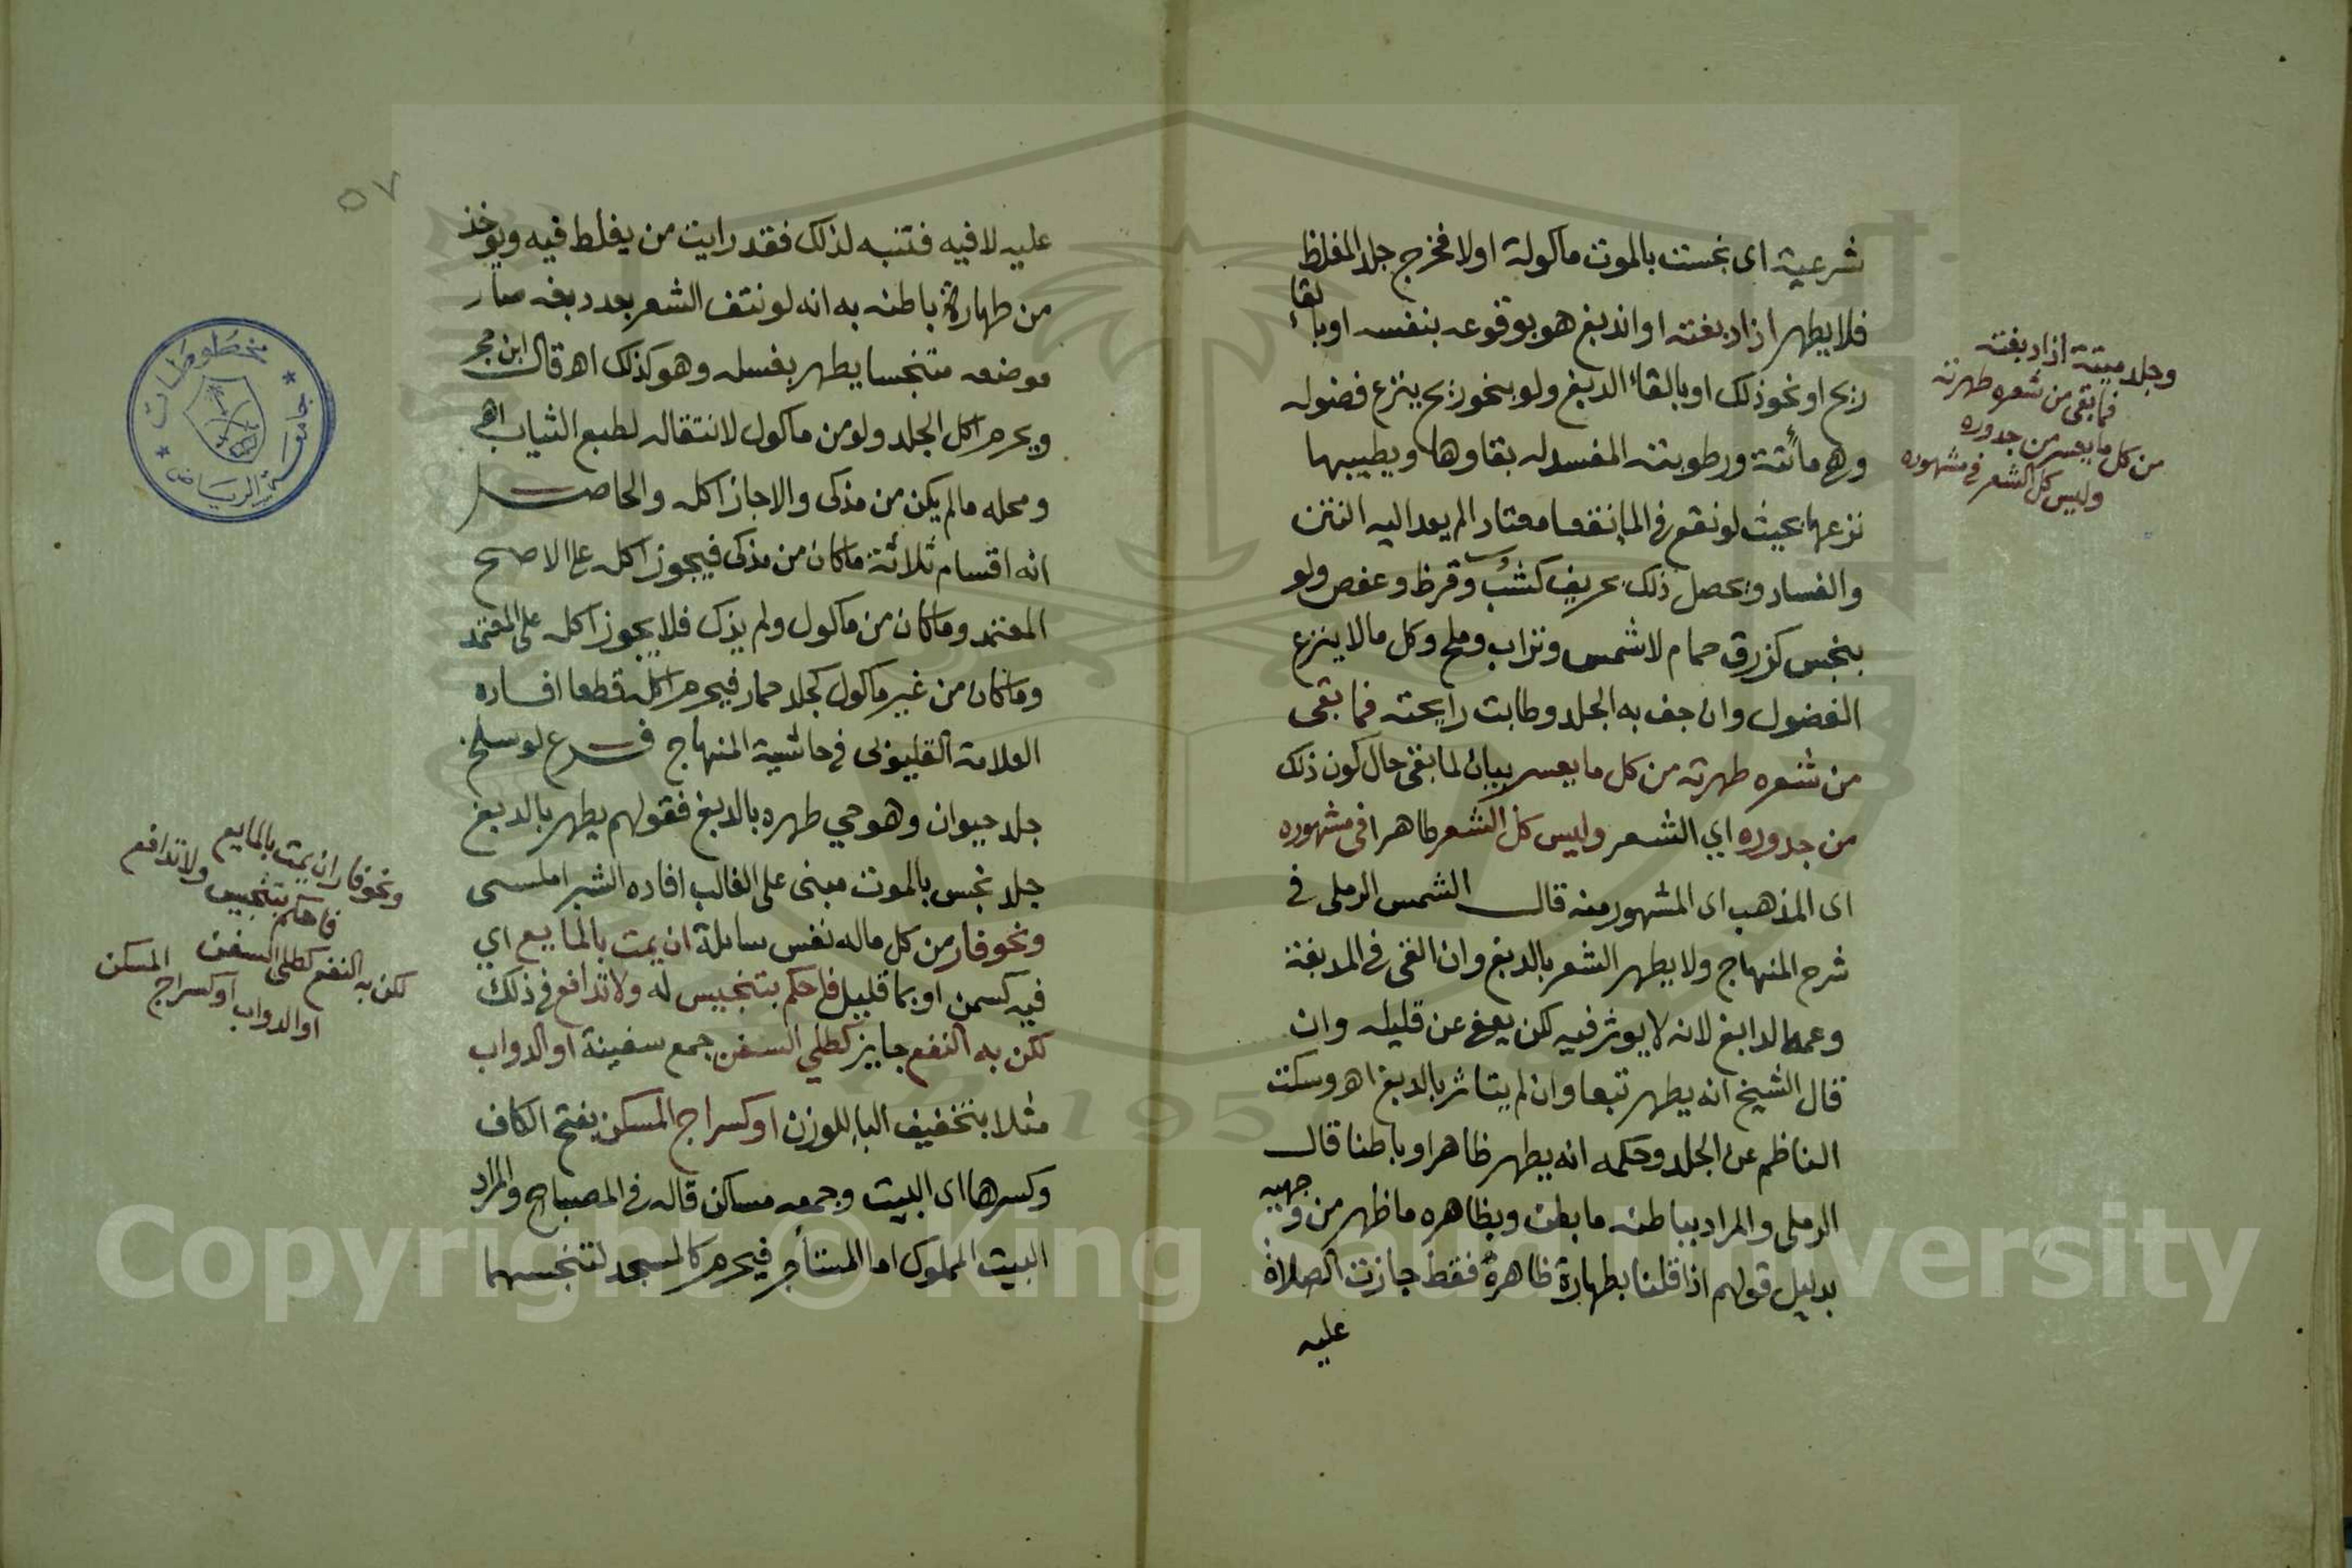 شرعية اى نجست بالموت ماكولة اولا فخرج جلد المغلظ
فلا يطهر اذا دبغته او اندبغ هو بوقوعه بنفسه او بالقاء
ريح او نحو ذلك او بالقاء الدبغ ولو بنحو ريح ينزع فضوله
وهى مائته ورطوبته المفسد له بقاوها ويطيبها
نزعها بحيث لو نقع فى الما نقعا معتادا لم يعد اليه النتن
والفساد ويحصل ذلك بحريف كشب وقرظ وعفص ولو
بنجس كزرق حمام لا شمس وتراب وملح وكل ما لا ينزع
الفضول وان جف به الجلد وطابت رايحته فما بقى
من شعره طهرته من كل ما يعسر بيان لما بقى حال كون ذلك
من جدوره اي الشعر وليس كل الشعر طاهرا فى مشهوره
اى المذهب اى المشهور منه قال الشمس الرملى فى
شرح المنهاج ولا يطهر الشعر بالدبغ وان القى فى المدبغة
وعمه الدابغ لانه لا يوثر فيه لكن يعفى عن قليله وان
قال الشيخ انه يطهر تبعا وان لم يتاثر بالدبغ اهـ وسكت
الناظم عن الجلد وحكمه انه يطهر ظاهرا وباطنا قال
الرملى والمراد بباطنه ما بطن وبظاهره ما ظهر من وجهيه
بدليل قولهم اذا قلنا بطهارة ظاهره فقط جازت الصلاة
عليه
وجلد ميتة اذا دبغته
فما بقى من شعره طهرته
من كل ما يعسر من جدوره
وليس كل الشعر فى مشهوره
٥٧
عليه لا فيه فتنبه لذلك فقد رايت من يغلط فيه ويوخذ
من طهارة باطنه به انه لو نتف الشعر بعد دبغه صار
موضعه متنجسا يطهر بغسله وهو كذلك اهـ قال ابن حجر
ويحرم اكل الجلد ولو من ماكول لانتقاله لطبع الثياب اهـ
ومحله ما لم يكن من مذكى والا جاز اكله والحاصل
انه اقسام ثلاثة ما كان من مذكى فيجوز اكله على الاصح
المعتمد وما كان من ماكول ولم يذك فلا يجوز اكله على المعتمد
وما كان من غير ماكول كجلد حمار فيحرم اكله قطعا افاده
العلامة القليوبى فى حاشية المنهاج فرع لو سلخ
جلد حيوان وهو حي طهره بالدبغ فقولهم يطهر بالدبغ
جلد نجس بالموت مبنى على الغالب افاده الشبراملسى
ونحو فار من كل ماله نفس سايلة ان يمت بالمايع اي
فيه كسمن او بما قليل فاحكم بتنجيس له ولا تدافع فى ذلك
لكن به النفع جايز كطلي السفن جمع سفينة او الدواب
مثلا بتخفيف البا للوزن او كسراج المسكن بفتح الكاف
وكسرها اى البيت وجمعه مساكن قاله فى المصباح والمراد
البيت المملوك اما المستأجر فيحرم كالمسجد لتنجسهما
ونحو فار ان يمت بالمايع
فاحكم بتنجيس ولا تدافع
لكن به النفع كطلى السفن
او الدواب او كسراج المسكن
مخطوطات
جامعة الرياض
1957
Copyright © King Saud University